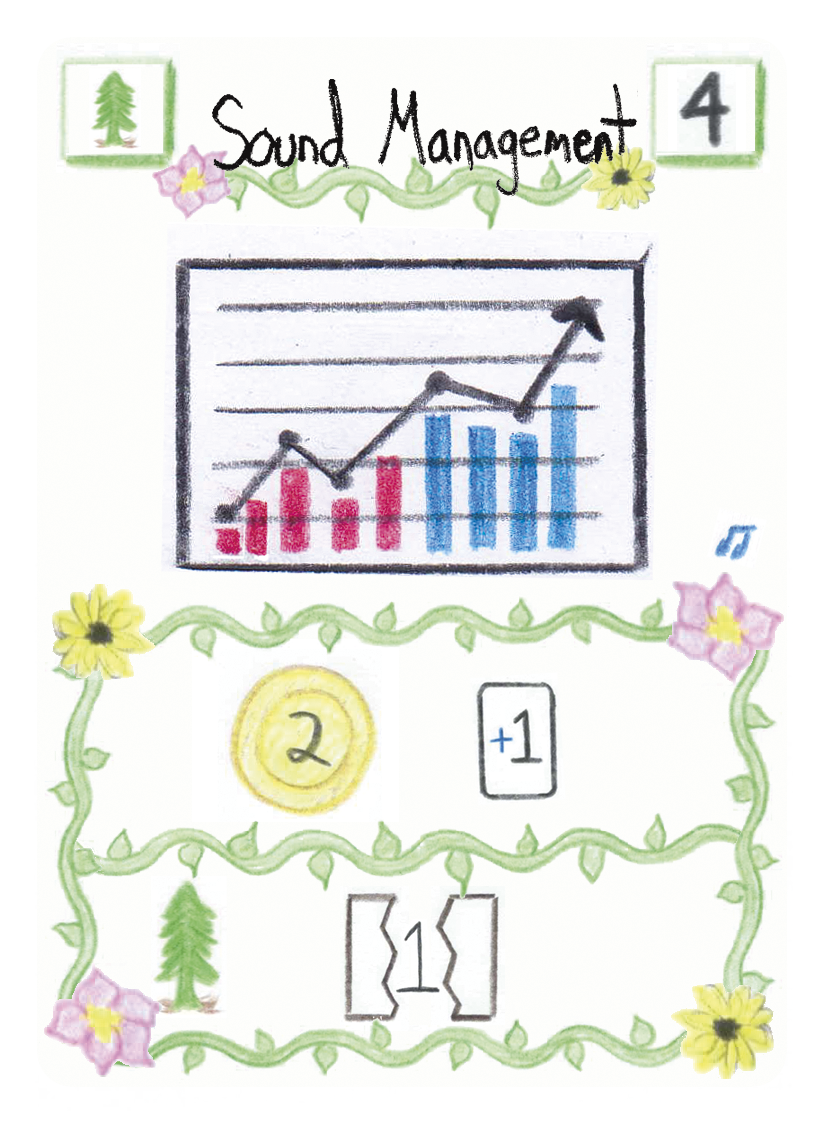 Sound Management
4
2
+1
1